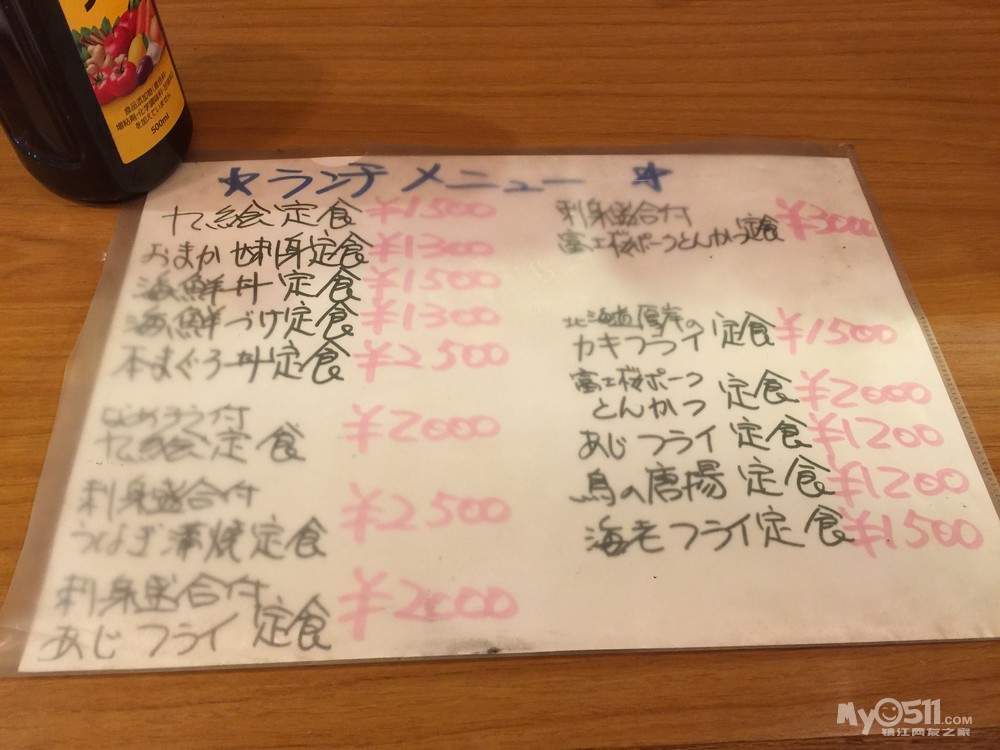 食品添加物(着色料・
増粘剤・化学調味料・甘味料)
を加えていません
500ml
★ランチメニュー★
九絵定食 ¥1500
おまかせ刺身定食 ¥1300
海鮮丼定食 ¥1500
海鮮づけ定食 ¥1300
本まぐろ丼定食 ¥2500
付
九絵定食 ¥2000
刺身盛合付
うなぎ蒲焼定食 ¥2500
刺身盛合付
あじフライ定食 ¥2000
刺身盛合付
富士桜ポークとんかつ定食 ¥3000
北海道厚岸の
カキフライ定食 ¥1500
富士桜ポーク
とんかつ定食 ¥2000
あじフライ定食 ¥1200
鳥の唐揚定食 ¥1200
海老フライ定食 ¥1500
My0511.COM
镇江网友之家